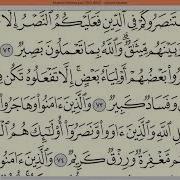 ٱسْتَنصَرُوكُمْ فِى ٱلدِّينِ فَعَلَيْكُمُ ٱلنَّصْرُ إِلَّا
وَبَيْنَهُم مِّيثَٰقٌ وَٱللَّهُ بِمَا تَعْمَلُونَ بَصِيرٌ ٧٢
بَعْضُهُمْ أَوْلِيَآءُ بَعْضٍ إِلَّا تَفْعَلُوهُ تَكُن
وَفَسَادٌ كَبِيرٌ ٧٣ وَٱلَّذِينَ ءَامَنُوا۟ وَهَاجَرُوا۟
ٱللَّهِ وَٱلَّذِينَ ءَاوَوا۟ وَّنَصَرُوٓا۟ أُو۟لَٰٓئِكَ هُمُ
مَّغْفِرَةٌ وَرِزْقٌ كَرِيمٌ ٧٤ وَٱلَّذِينَ ءَامَنُوا۟